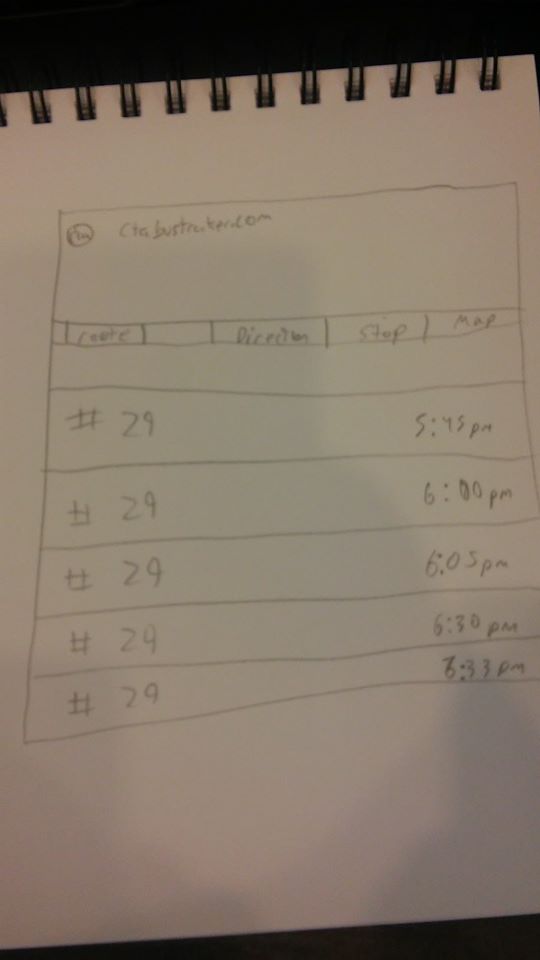 cta ctabustracker.com
route Direction Stop Map
# 29 5:45 pm
# 29 6:00 pm
# 29 6:05 pm
# 29 6:30 pm
# 29 6:33 pm